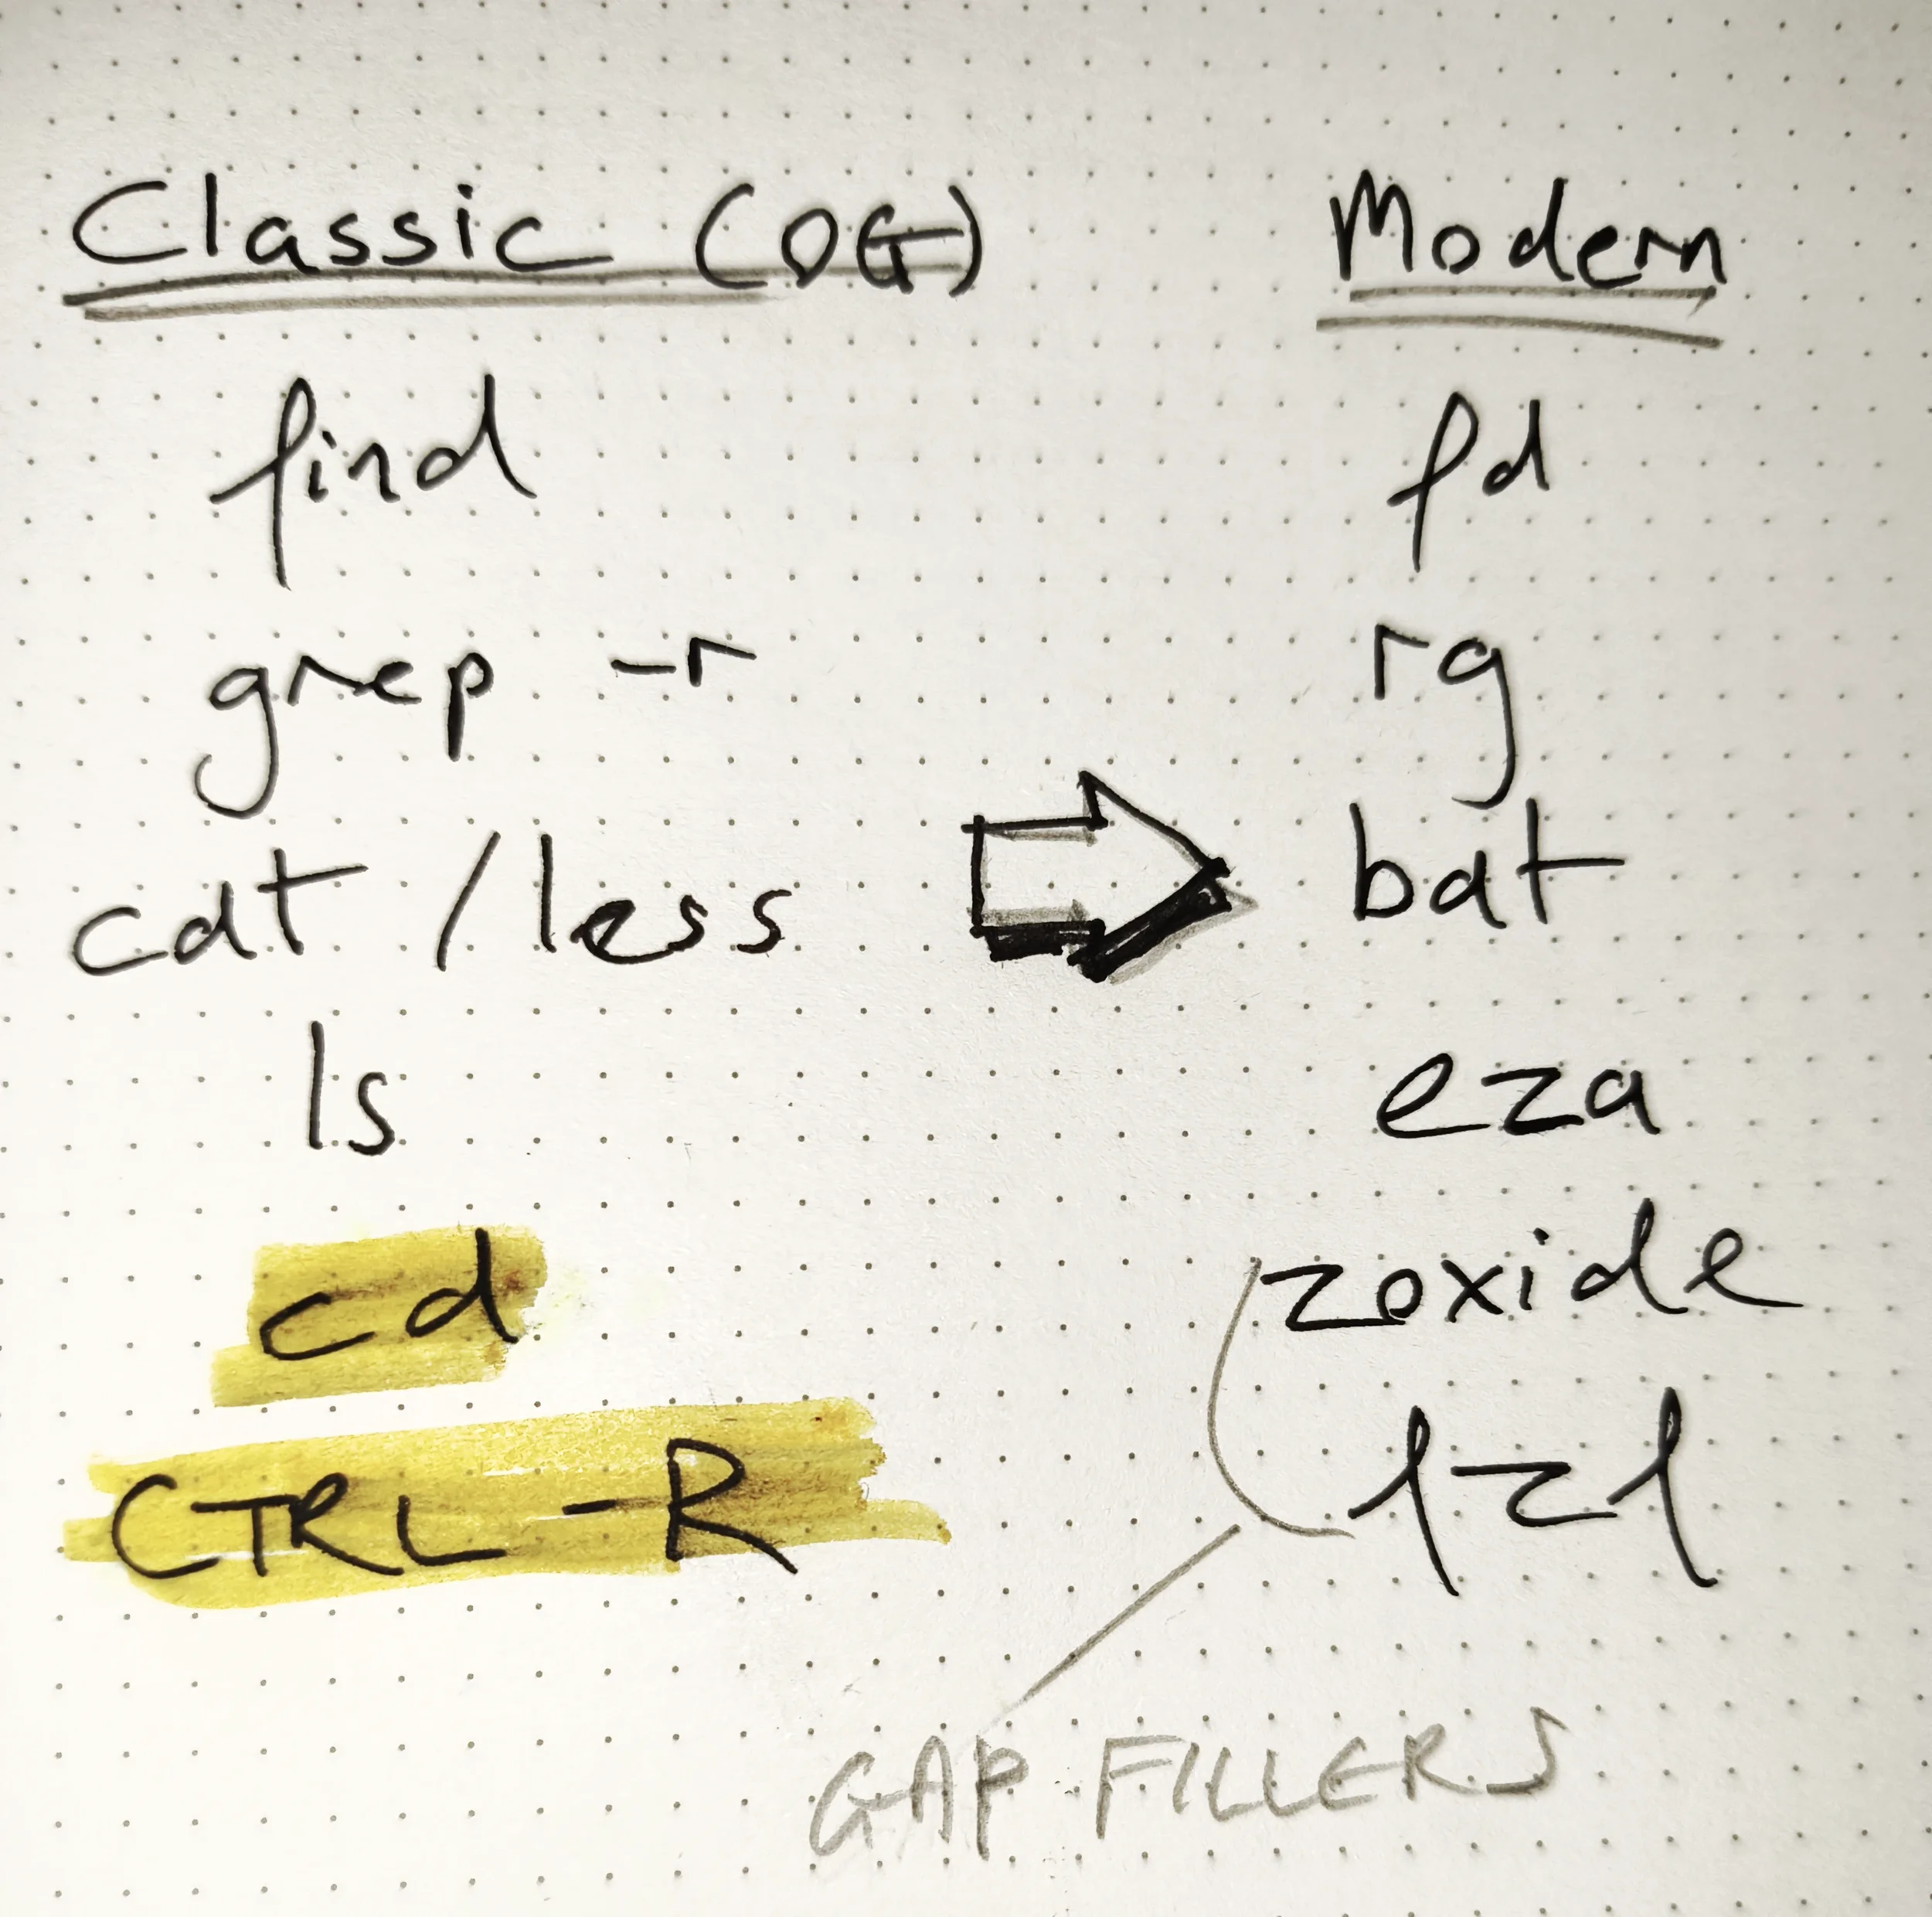 Classic (OG) Modern
find fd
grep -r rg
cat / less bat
ls eza
cd zoxide
CTRL-R fzf
GAP FILLERS